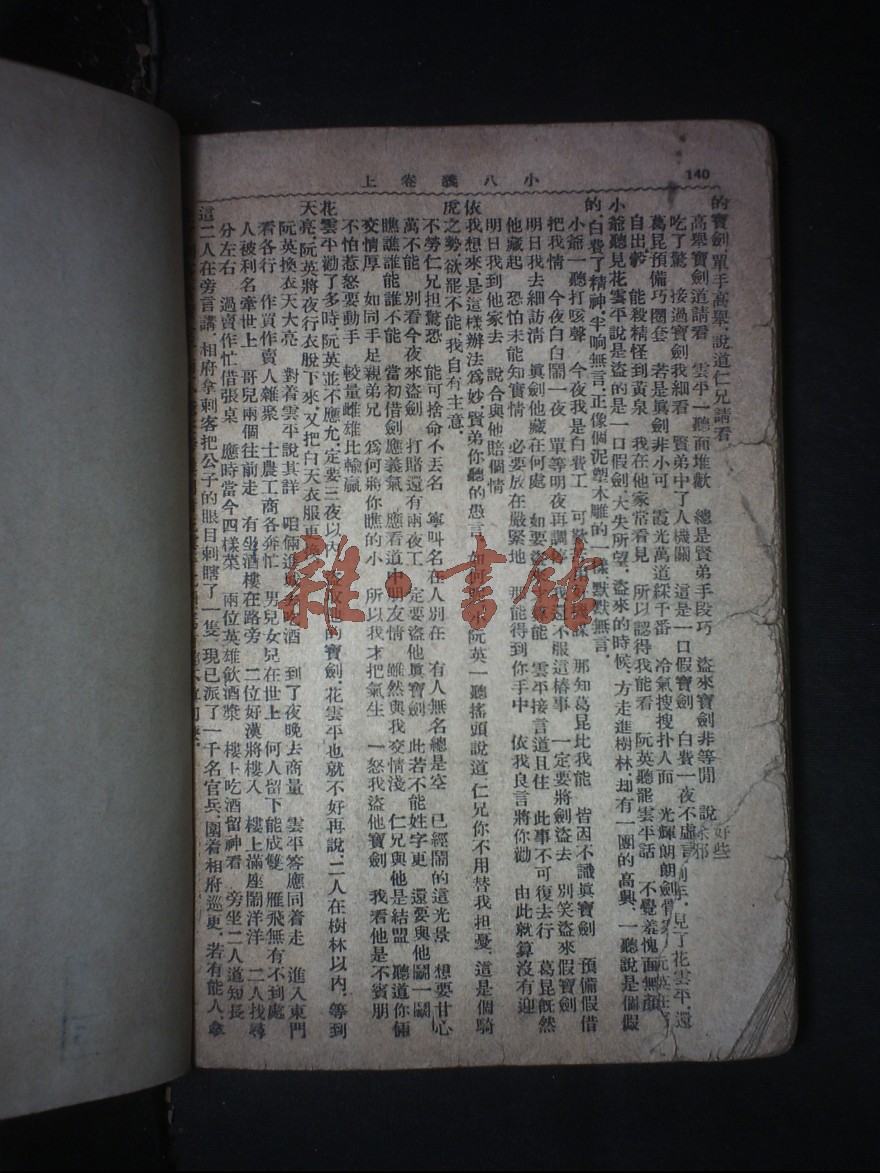 140
小八義卷上
的寶劍單手高舉，說道仁兄請看，
高舉寶劍道請看　雲平一聽面堆歡　總是賢弟手段巧　盜來寶劍非等閒　說
吃了驚　接過寶劍我細看　賢弟中了人機關　這是一口假寶劍　白費一夜不虛言　見了花雲平，還
葛昆預備巧圈套　若是眞劍非小可　霞光萬道綵千番　冷氣搜搜扑人面　光輝朗朗劍
自出彩　能殺精怪到黃泉　我在他家常看見　所以認得我能看　阮英聽罷雲平話　不覺羞愧面無顏
小爺聽見花雲平說是盜的是一口假劍，大失所望，盜來的時候，方走進樹林，却有一團的高興，一聽說是個假
的，白費了精神，半响無言，正像個泥塑木雕的一樣，默默無言，
小爺一聽打咳聲　今夜我是白費工　可歎　那知葛昆比我能　皆因不識眞寶劍　預備假借
把我情　今夜白白鬧一夜　單等明夜再調停　我還不服這樁事　一定要將劍盜去　別笑盜來假寶劍
明日我去細訪清　眞劍他藏在何處　如要盜　能　雲平接言道且住　此事不可復去行　葛昆旣然
他藏起　恐怕未能知實情　必要放在嚴緊地　那能得到你手中　依我良言將你勸　由此就算沒有迎
明日我到他家去　說合與他賠個情
依我想來是這樣辦法爲妙，賢弟你聽的愚言　如何　阮英一聽搖頭說道，仁兄你不用替我担憂，這是個騎
虎之勢，欲罷不能，我自有主意，
不勞仁兄担驚恐　能可捨命不丟名　寧叫名在人別在　有人無名總是空　已經鬧的這光景　想要甘心
萬不能　別看今夜來盜劍　打賭還有兩夜工　定要盜他眞寶劍　此若不能姓字更　還要與他鬭一鬭
瞧誰誰能誰不能　當初借劍應義氣　應看道中朋友情　雖然與我交情淺　仁兄與他是結盟　聽道你倆
交情厚　如同手足親弟兄　爲何將你瞧的小　所以我才把氣生　一怒我盜他寶劍　我看他是不賓朋
不怕惹怒要動手　較量雌雄比輸贏
花雲平勸了多時，阮英並不應允，定要三夜以內　他的寶劍，花雲平也就不好再說，二人在樹林以內，等到
天亮，阮英將夜行衣脫下來，又把白天衣服更
阮英換衣天大亮　對着雲平說其詳　咱倆進　吃酒　到了夜晚去商量　雲平答應同着走　進入東門
看各行　作買作賣人雜聚　士農工商各奔忙　男兒女兒在世上　何人留下能成雙　雁飛無有不到處
人被利名牽世上　哥兒兩個往前走　有坐酒樓在路旁　二位好漢將樓入　樓上滿座鬧洋洋　二人找尋
分左右　過賣作忙借張桌　應時當今四樣菜　兩位英雄飲酒漿　樓上吃酒留神看　旁坐二人道知長
這二人在旁言講，相府拿刺客把公子的眼目刺瞎了一隻，現已派了一千名官兵，圍着相府巡更，若有能人，拿
雜·書館